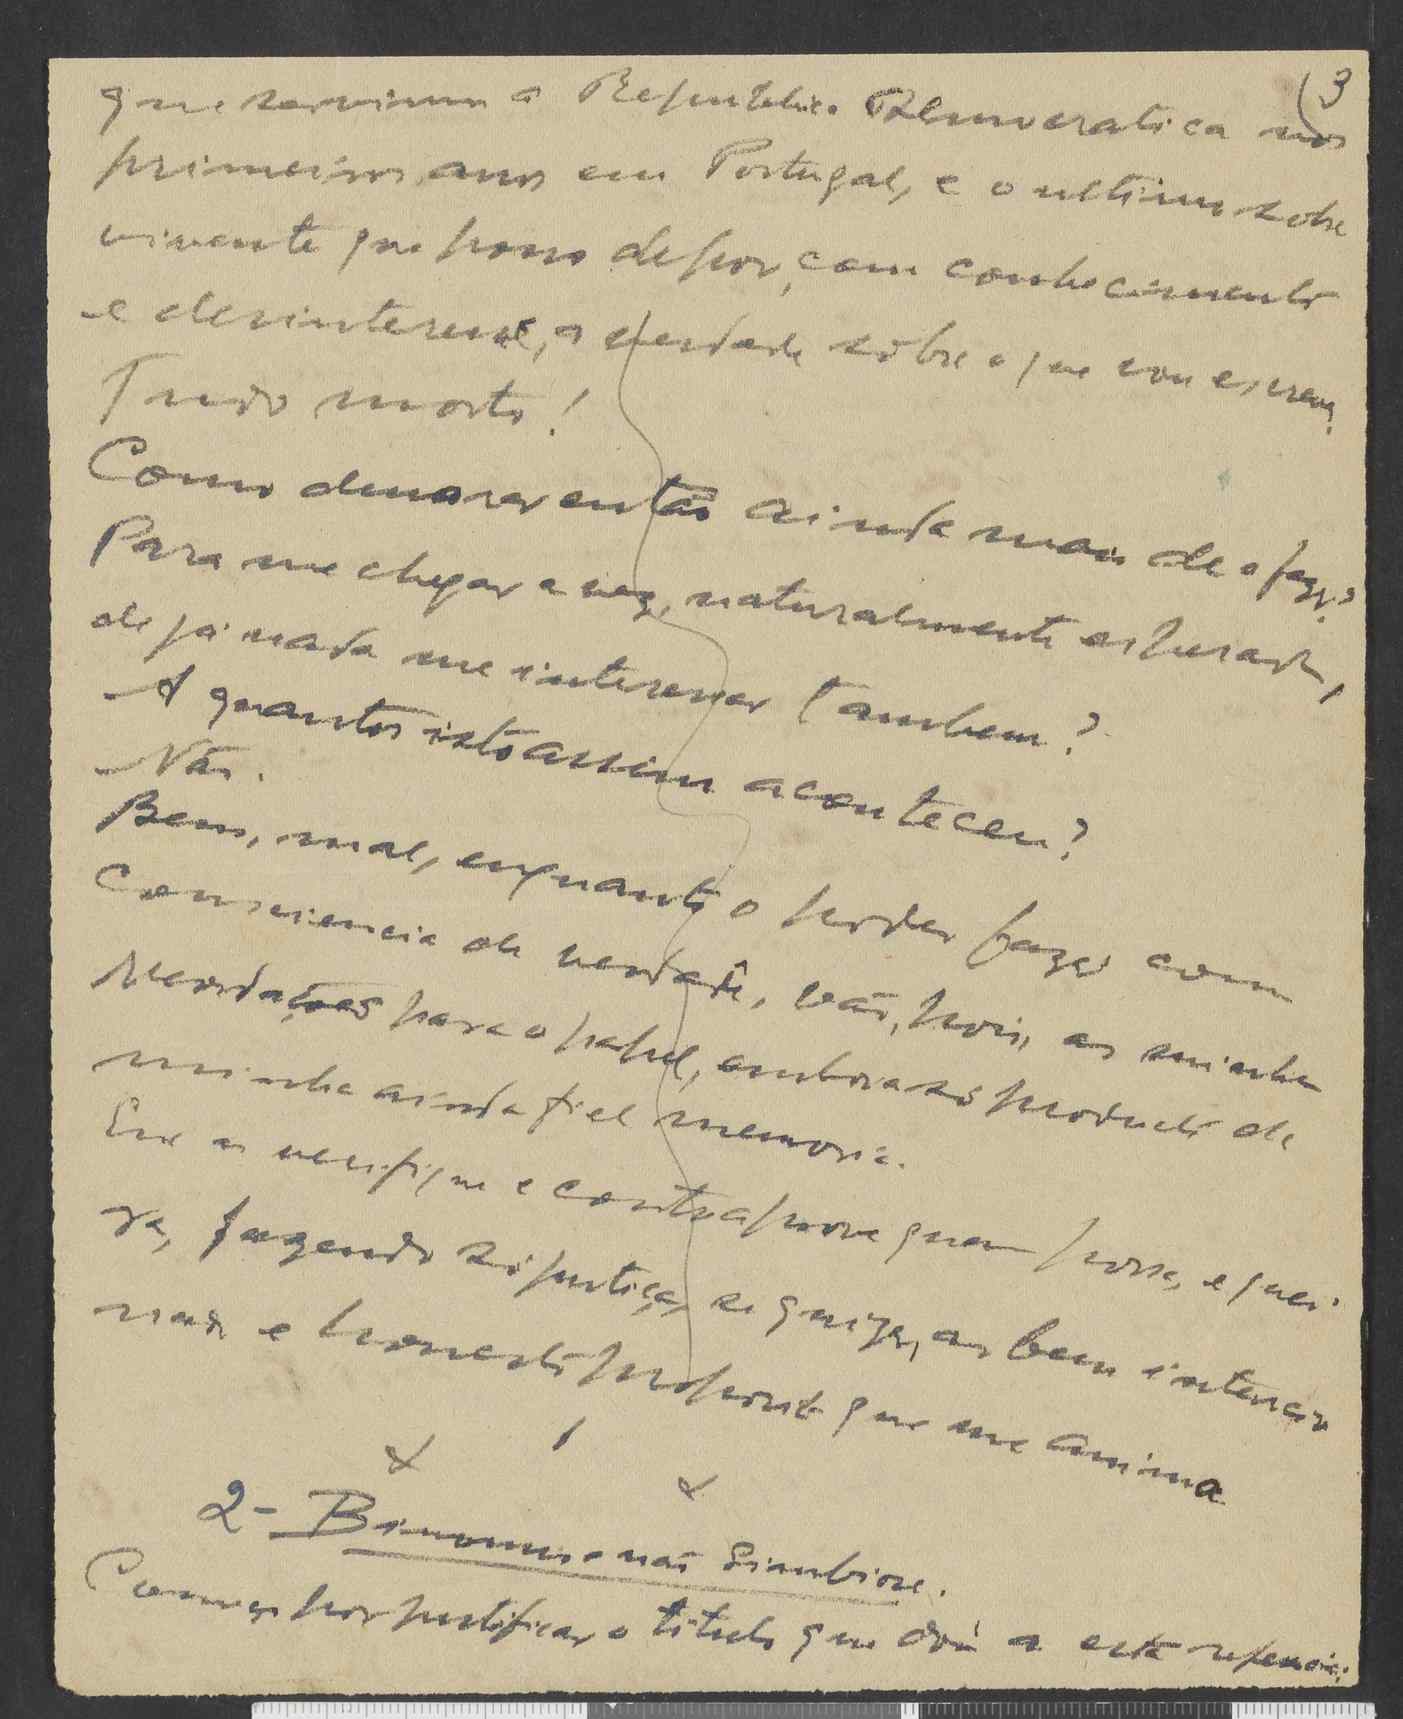 (3
que serviram a Republica Democratica nos
primeiros anos em Portugal, e o ultimo sobre
vivente que posso depor, com conhecimento
e desinteresse, a verdade sôbre o que vou escrever.
Tudo morto!
Como demorar então ainda mais de o fazer?
Para me chegar a vez, naturalmente esperada,
de já nada me interessar tambem?
A quantos isto assim aconteceu?
Não.
Bem, mal, enquanto o poder fazer com
consciencia da verdade, vão, pois, as minhas
recordações para o papel, embora só producto da
minha ainda fiel memoria.
Que as verifique e contraprove quem possa, e quei
ra, fazendo só justiça, se quizer, ao bem intencio
nado e honesto proposito que me anima
x x
2- Binomio e não Simbiose.
Começo por justificar o titulo que dou a esta referencia;